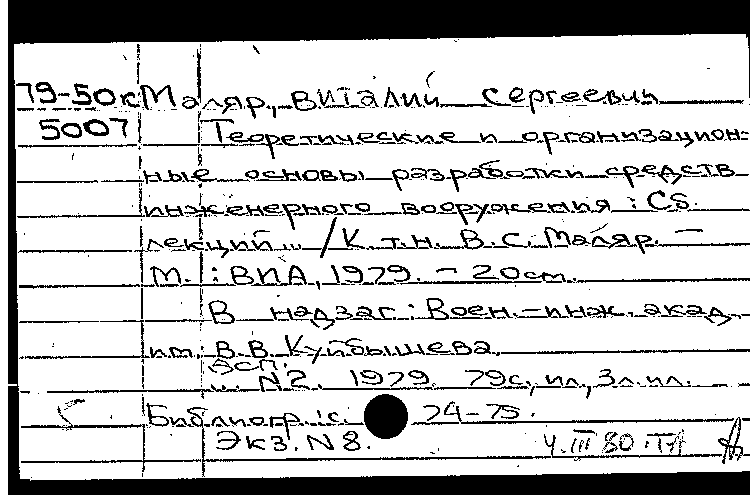 79-50к Маляр, Виталий Сергеевич
5007 Теоретические и организацион-
ные основы разработки средств
инженерного вооружения : Сб.
лекций... / К.т.н. В.С. Маляр. —
М. : ВИА, 1979. - 20 см.
В надзаг: Воен.-инж. акад.
им. В.В. Куйбышева.
Вып.
... N2. 1979. 79с., ил, 3л.ил.
5 Библиогр.: с. 74-75.
Экз. N8. 4.III 80